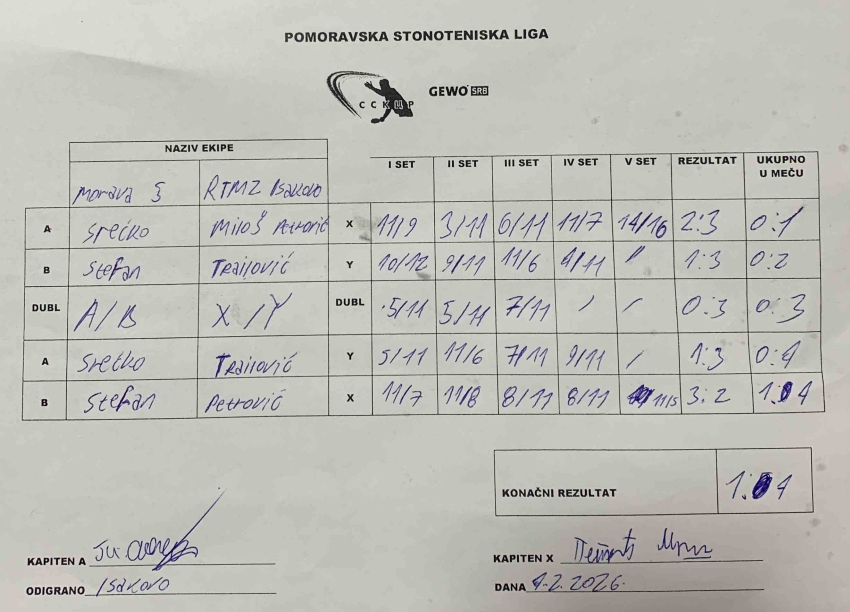 POMORAVSKA STONOTENISKA LIGA
ССКЦР GEWO SRB
NAZIV EKIPE I SET II SET III SET IV SET V SET REZULTAT UKUPNO U MEČU
Morava 3 RTMZ Isakovo
A Srećko Miloš Petrović X 11/9 3/11 6/11 11/7 14/16 2:3 0:1
B Stefan Trailović Y 10/12 9/11 11/6 4/11 / 1:3 0:2
DUBL A/B X/Y DUBL 5/11 5/11 7/11 / / 0:3 0:3
A Srećko Trailović Y 5/11 11/6 7/11 9/11 / 1:3 0:4
B Stefan Petrović X 11/7 11/8 8/11 8/11 11/5 3:2 1:4
KONAČNI REZULTAT 1:4
KAPITEN A
KAPITEN X
ODIGRANO Isakovo
DANA 4.2.2026.